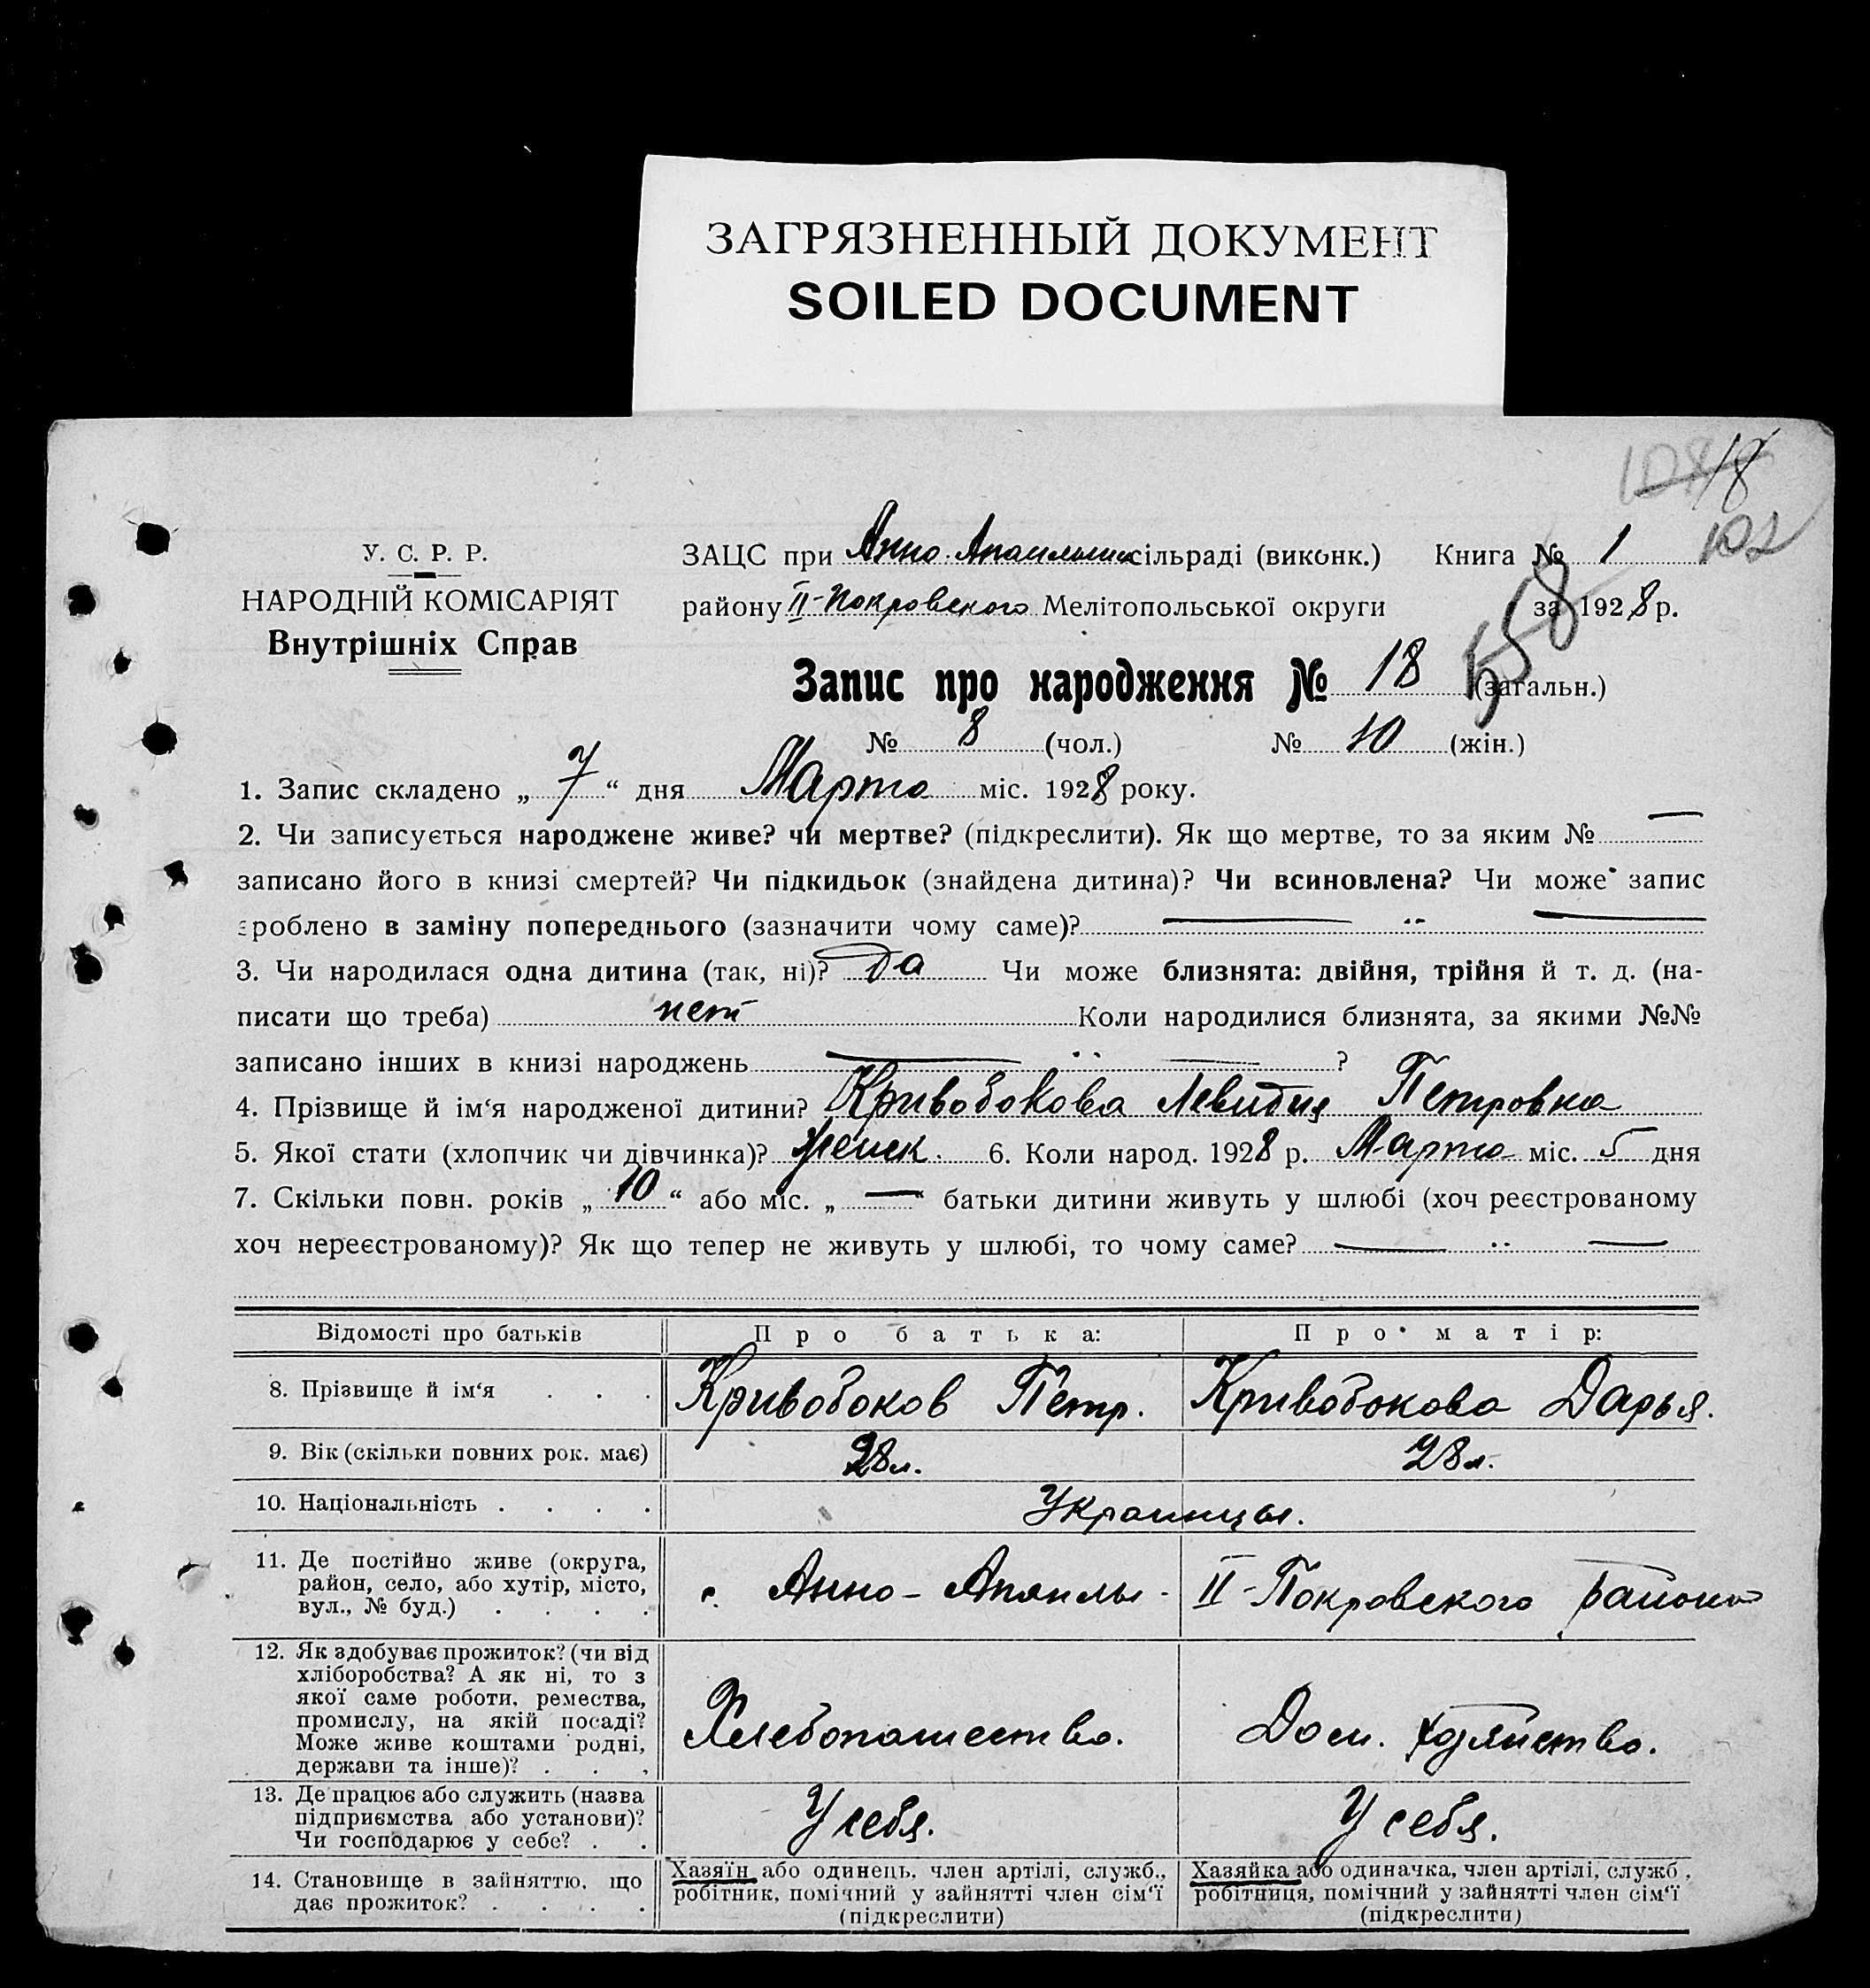 ЗАГРЯЗНЕННЫЙ ДОКУМЕНТ
SOILED DOCUMENT
18
102
У. С. Р. Р.
НАРОДНІЙ КОМІСАРІЯТ
Внутрішніх Справ
ЗАЦС при Анно сільраді (виконк.) Книга № 1
району II-Покровского Мелітопольської округи за 1928 р.
558
Запис про народження № 18 (загальн.)
№ 8 (чол.) № 10 (жін.)
1. Запис складено „ 7 “ дня Марта міс. 1928 року.
2. Чи записується народжене живе? чи мертве? (підкреслити). Як що мертве, то за яким № —
записано його в книзі смертей? Чи підкидьок (знайдена дитина)? Чи всиновлена? Чи може запис
зроблено в заміну попереднього (зазначити чому саме)? — „ —
3. Чи народилася одна дитина (так, ні)? Да Чи може близнята: двійня, трійня й т. д. (на-
писати що треба) нет Коли народилися близнята, за якими №№
записано інших в книзі народжень — „ — ?
4. Прізвище й ім‘я народженої дитини? Кривобокова Петровна
5. Якої стати (хлопчик чи дівчинка)? женск. 6. Коли народ. 1928 р. Марта міс. 5 дня
7. Скільки повн. років „ 10 “ або міс. „ — “ батьки дитини живуть у шлюбі (хоч реєстрованому
хоч нереєстрованому)? Як що тепер не живуть у шлюбі, то чому саме? — „ —
Відомості про батьків Про батька: Про матір:
8. Прізвище й ім‘я . . . Кривобоков Петр. Кривобокова Дарья.
9. Вік (скільки повних рок. має) 28 л. 28 л.
10. Національність . . . . Украинцы.
11. Де постійно живе (округа,
район, село, або хутір, місто,
вул., № буд.) . . . .
с. Анно- II-Покровского района
12. Як здобуває прожиток? (чи від
хліборобства? А як ні, то з
якої саме роботи, ремества,
промислу, на якій посаді?
Може живе коштами родні,
держави та інше)? . . .
Хлебопашество. Дом. хозяйство.
13. Де працює або служить (назва
підприємства або установи)?
Чи господарює у себе? . .
У себя. У себя.
14. Становище в зайняттю, що
дає прожиток? . . . .
Хазяїн або одинець, член артілі, служб.,
робітник, помічний у зайнятті член сім‘ї
(підкреслити)
Хазяйка або одиначка, член артілі, служб.,
робітниця, помічний у зайнятті член сім‘ї
(підкреслити)